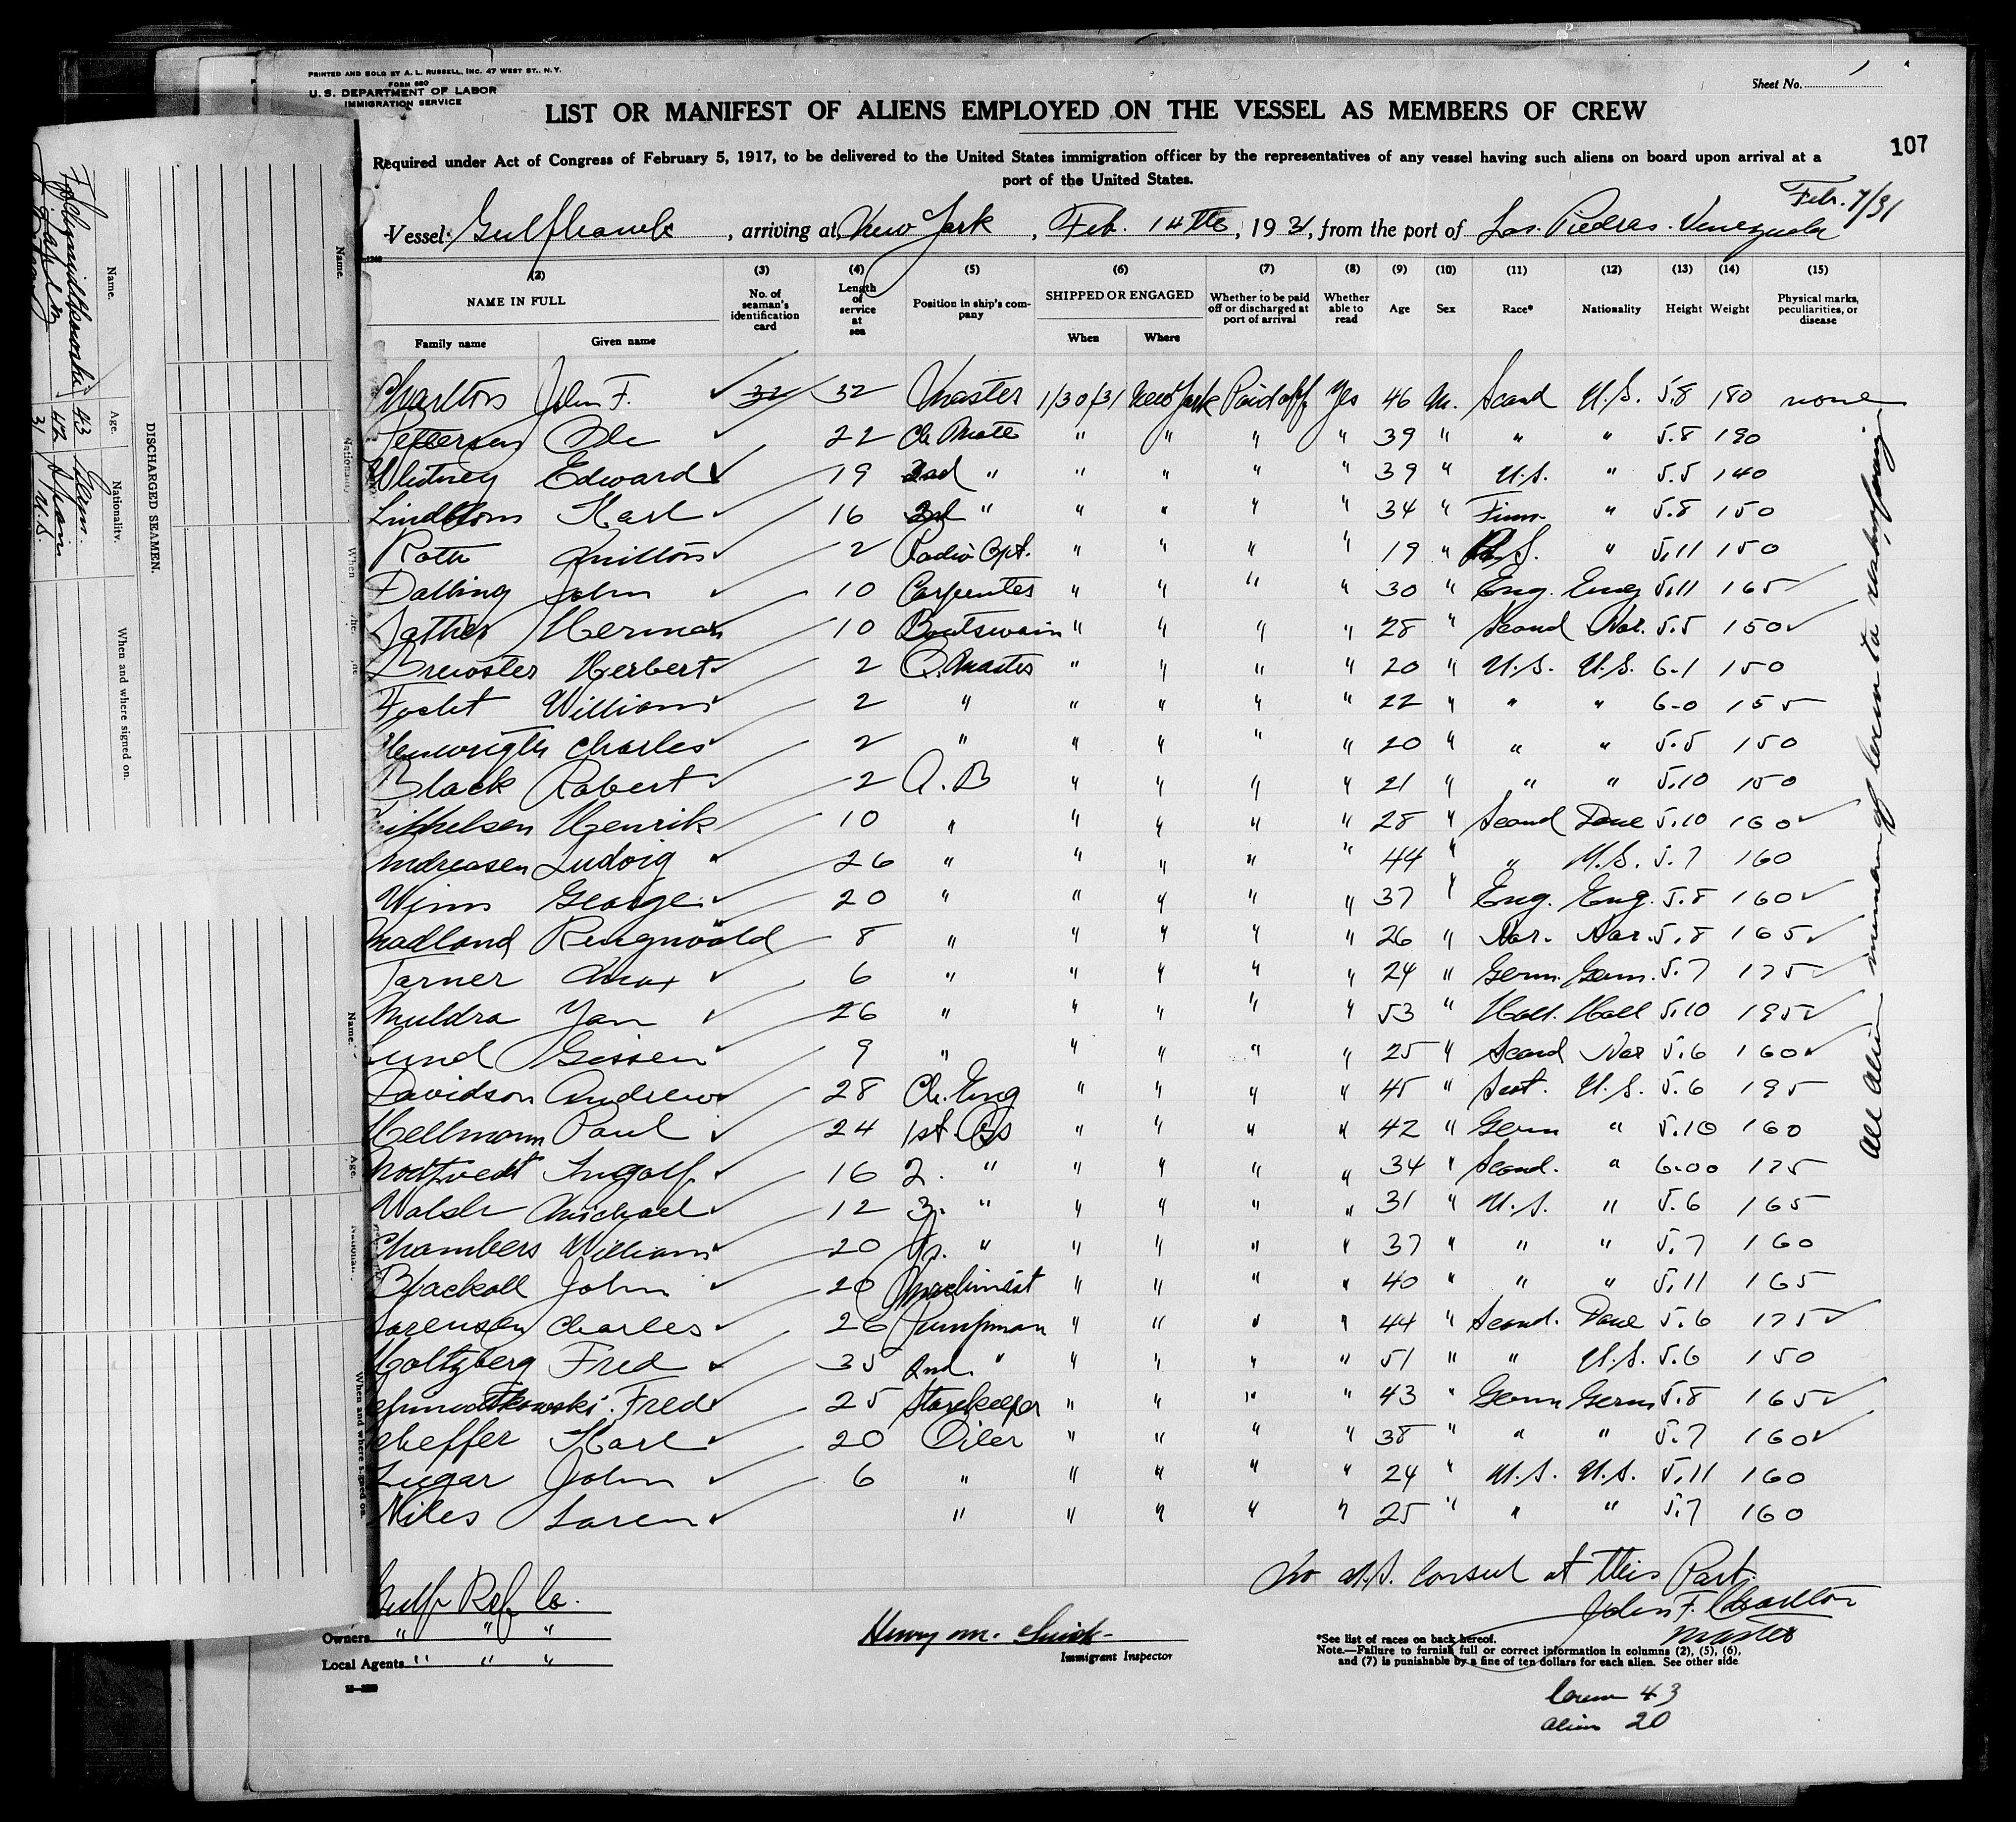 PRINTED AND SOLD BY A. L. RUSSELL, INC. 47 WEST ST., N.Y.
FORM 680
U. S. DEPARTMENT OF LABOR
IMMIGRATION SERVICE
Sheet No. 1
LIST OR MANIFEST OF ALIENS EMPLOYED ON THE VESSEL AS MEMBERS OF CREW
107
Required under Act of Congress of February 5, 1917, to be delivered to the United States immigration officer by the representatives of any vessel having such aliens on board upon arrival at a
port of the United States.
Feb. 7/31
Vessel Gulfhawk, arriving at New York, Feb. 14th, 1931, from the port of Las Piedras Venezuela
(2) (3) (4) (5) (6) (7) (8) (9) (10) (11) (12) (13) (14) (15)
NAME IN FULL No. of seaman's identification card Length of service at sea Position in ship's company SHIPPED OR ENGAGED Whether to be paid off or discharged at port of arrival Whether able to read Age Sex Race* Nationality Height Weight Physical marks, peculiarities, or disease
Family name Given name When Where
Charlton John F. 32 32 Master 1/30/31 New York Paid off Yes 46 M. Scand U.S. 5.8 180 none
Petterson Ole 22 Ch Mate " " " " 39 " " " 5.8 190
Whitney Edward 19 2nd " " " " " 39 " U.S. " 5.5 140
Lindblom Karl 16 3rd " " " " " 34 " Finn. " 5.8 150
Roth Milton 2 Radio Opt. " " " " 19 " U.S. " 5.11 150
Dalling John 10 Carpenter " " " " 30 " Eng. Eng 5.11 165
Herman 10 Boatswain " " " " 28 " Scand Nor. 5.5 150
Brewster Herbert 2 Q. Master " " " " 20 " U.S. U.S. 6-1 150
Focht William 2 " " " " " 22 " " " 6-0 155
Charles 2 " " " " " 20 " " " 5.5 150
Black Robert 2 A.B " " " " 21 " " " 5.10 150
Henrik 10 " " " " " 28 " Scand Dane 5.10 160
Andreasen Ludvig 26 " " " " " 44 " " U.S. 5.7 160
Winn George 20 " " " " " 37 " Eng. Eng. 5.8 160
Madland Ringnvald 8 " " " " " 26 " Nor. Nor. 5.8 165
Tarner Max 6 " " " " " 24 " Germ. Germ. 5.7 175
Muldra Jan 26 " " " " " 53 " Holl. Holl 5.10 195
Lund Gissen 9 " " " " " 25 " Scand Nor 5.6 160
Davidson Andrew 28 Ch. Eng " " " " 45 " Scot. U.S. 5.6 195
Hellmann Paul 24 1st. Ass " " " " 42 " Germ " 5.10 160
Ingolf 16 2. " " " " " 34 " Scand. " 6.00 175
Walsh Michael 12 3. " " " " " 31 " U.S. " 5.6 165
Chambers William 20 Jr. " " " " " 37 " " " 5.7 160
Blackall John 20 Machinist " " " " 40 " " " 5.11 165
Sorensen Charles 26 Pumpman " " " " 44 " Scand. Dane 5.6 175
Holtzberg Fred 35 2nd. " " " " " 51 " " U.S. 5.6 150
Fred 25 Storekeeper " " " " 43 " Germ Germ 5.8 165
Scheffer Karl 20 Oiler " " " " 38 " " " 5.7 160
Lugar John 6 " " " " " 24 " U.S. U.S. 5.11 160
Niles Loren " " " " " 25 " " " 5.7 160
No U.S. Consul at this Port.
John F. Charlton
Master
Gulf Ref. Co.
Owners " " "
Local Agents " " "
Henry M.
Immigrant Inspector
*See list of races on back hereof.
Note.—Failure to furnish full or correct information in columns (2), (5), (6),
and (7) is punishable by a fine of ten dollars for each alien. See other side
Crew 43
Alien 20
DISCHARGED SEAMEN.
Name. Age. Nationality. When and where signed on.
43 Germ.
42 Spain
31 U.S.
Name. Age. When and where signed on.